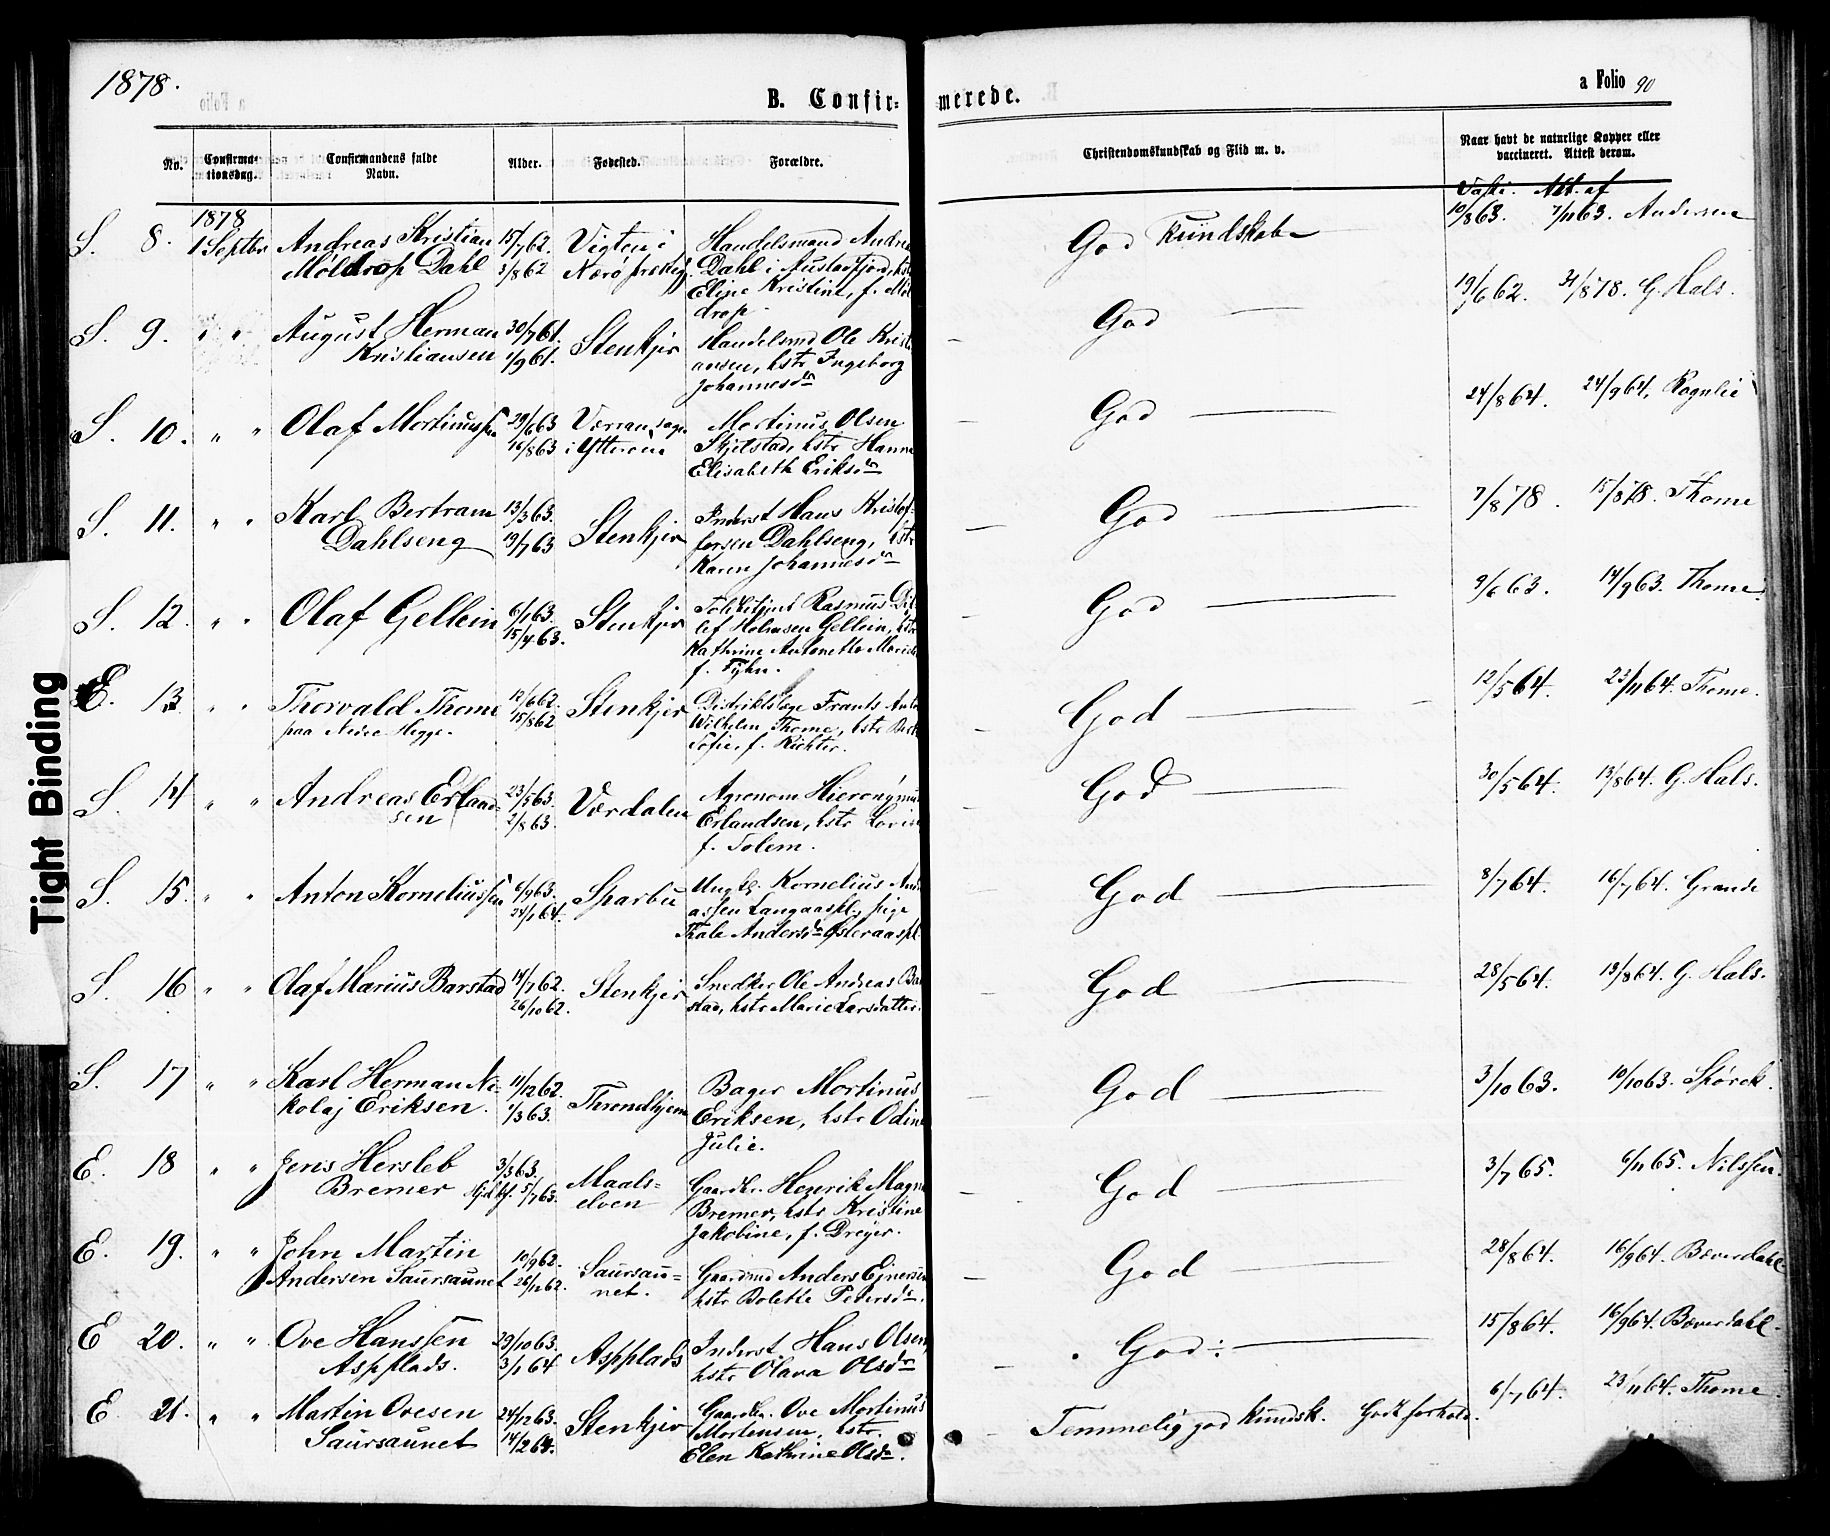 1878.
a Folio 90
B. Confir- merede.
No. Confirma-tionsdag. Confirmandens fulde Navn. Alder. Fødested. Forældre. Christendomskundskab og Flid m. v. Naar havt de naturlige Kopper eller vaccineret. Attest derom.
Vakc. Att. af
1878
S. 8. 1 Septbr Andreas Kristian 15/7 62. Vigten i Handelsmand Andreas God Kundskab 10/8 63. 7/11 63. Andersen
Møldrop Dahl 3/8 62 Nærø præstegj. Dahl i Austadfjord, hstr
Eline Kristine, f. Mol
drop.
S. 9. " " August Herman 30/7 61. Stenkjer Handelsmd Ole Kristi God 19/6 62. 31/8 78. G. Hals.
Kristiansen 1/9 61. ansen, hstr Ingeborg
Johannesdr
S. 10. " " Olaf Mortinussen 29/6 63 Værran sogn Mortinus Olsen God 24/8 64. 24/9 64, Rognlie
16/8 63 i Ytterøen Skjelstad, hstr Hanna
Elisabeth Eriksdr
S. 11. " " Karl Bertram 13/3 63. Stenkjer Inderst Hans Kristof- God 7/8 78. 15/8 78. Thome
Dahlseng 19/7 63 fersen Dahlseng, hstr
Karen Johannesdr
S. 12. " " Olaf Gellein 6/1 63. Stenkjer Toldbetjent Rasmus Dit God 9/6 63. 14/9 63. Thome.
15/4 63. lef Holmsen Gellein, hstr
Kathrine Antonette Marie
f. Tyhn.
E. 13. " " Thorvald Thome 12/6 62. Stenkjer Distriktslæge Frants Anton God 12/5 64. 23/11 64. Thome.
paa Nedre Hegge. 15/8 62 Wilhelm Thome, hstr
Sofie, f. Richter.
S. 14 " " Andreas Erland 23/5 63. Værdalen Agronom Hieronymus God 30/5 64. 13/8 64. G. Hals.
sen 2/8 63. Erlandsen, hstr
f. Tolem.
S. 15. " " Anton Korneliussen 6/9 63. Sparbu Ungk. Kornelius And God 8/7 64. 16/7 64. Grande
24/1 64. assen Langaaspl, pige
Thale Andersdr Østeraaspl.
S. 16 " " Olaf Marius Barstad 14/7 62. Stenkjer Snedker Ole Andreas Bar God 28/5 64. 13/8 64. G. Hals.
26/10 62. stad, hstr Marie Larsdatter.
S. 17 " " Karl Herman Ni- 11/12 62. Throndhjem Bager Mortinus God 3/10 63. 10/10 63. Størck.
kolaj Eriksen. 1/3 63. Eriksen, hstr Odine
Julie.
E. 18 " " Jens Hersleb 3/3 63. Maals- Gaardbr. Henrik Magnus God 3/7 65. 6/11 65. Nilssen.
Bremer Hjd bf. 5/7 63. elven Bremer, hstr Kristine
Jakobine, f. Dreyer.
E. 19. " " John Martin 10/9 62. Saursau- Gaardmd Anders Ejnersen God 28/8 64. 16/9 64. Bæverdahl
Andersen Saursaunet 26/12 62. net. hstr Bolette Petersdr.
E 20. " " Ove Hanssen 29/10 63. Aspplads Inderst Hans Olsen, God 15/8 64. 16/9 64. Bæverdahl.
Aspplads. 3/1 64 hstr Olava Olsdr
E. 21. " " Martin Ovesen 24/12 63. Stenkjer Gaardbr. Ove Mortinus Temmelig god kundsk. Godt forhold. 6/7 64. 23/11 64. Thome.
Saursaunet 14/2 64. Mortensen, hstr.
Elen Kathrine Olsdr.
Tight Binding